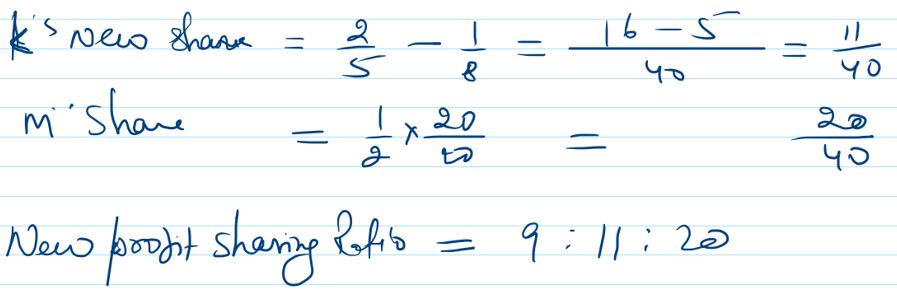 K's New share = 2/5 - 1/8 = 16-5/40 = 11/40
M' Share = 1/2 × 20/20 = 20/40
New profit sharing Ratio = 9 : 11 : 20